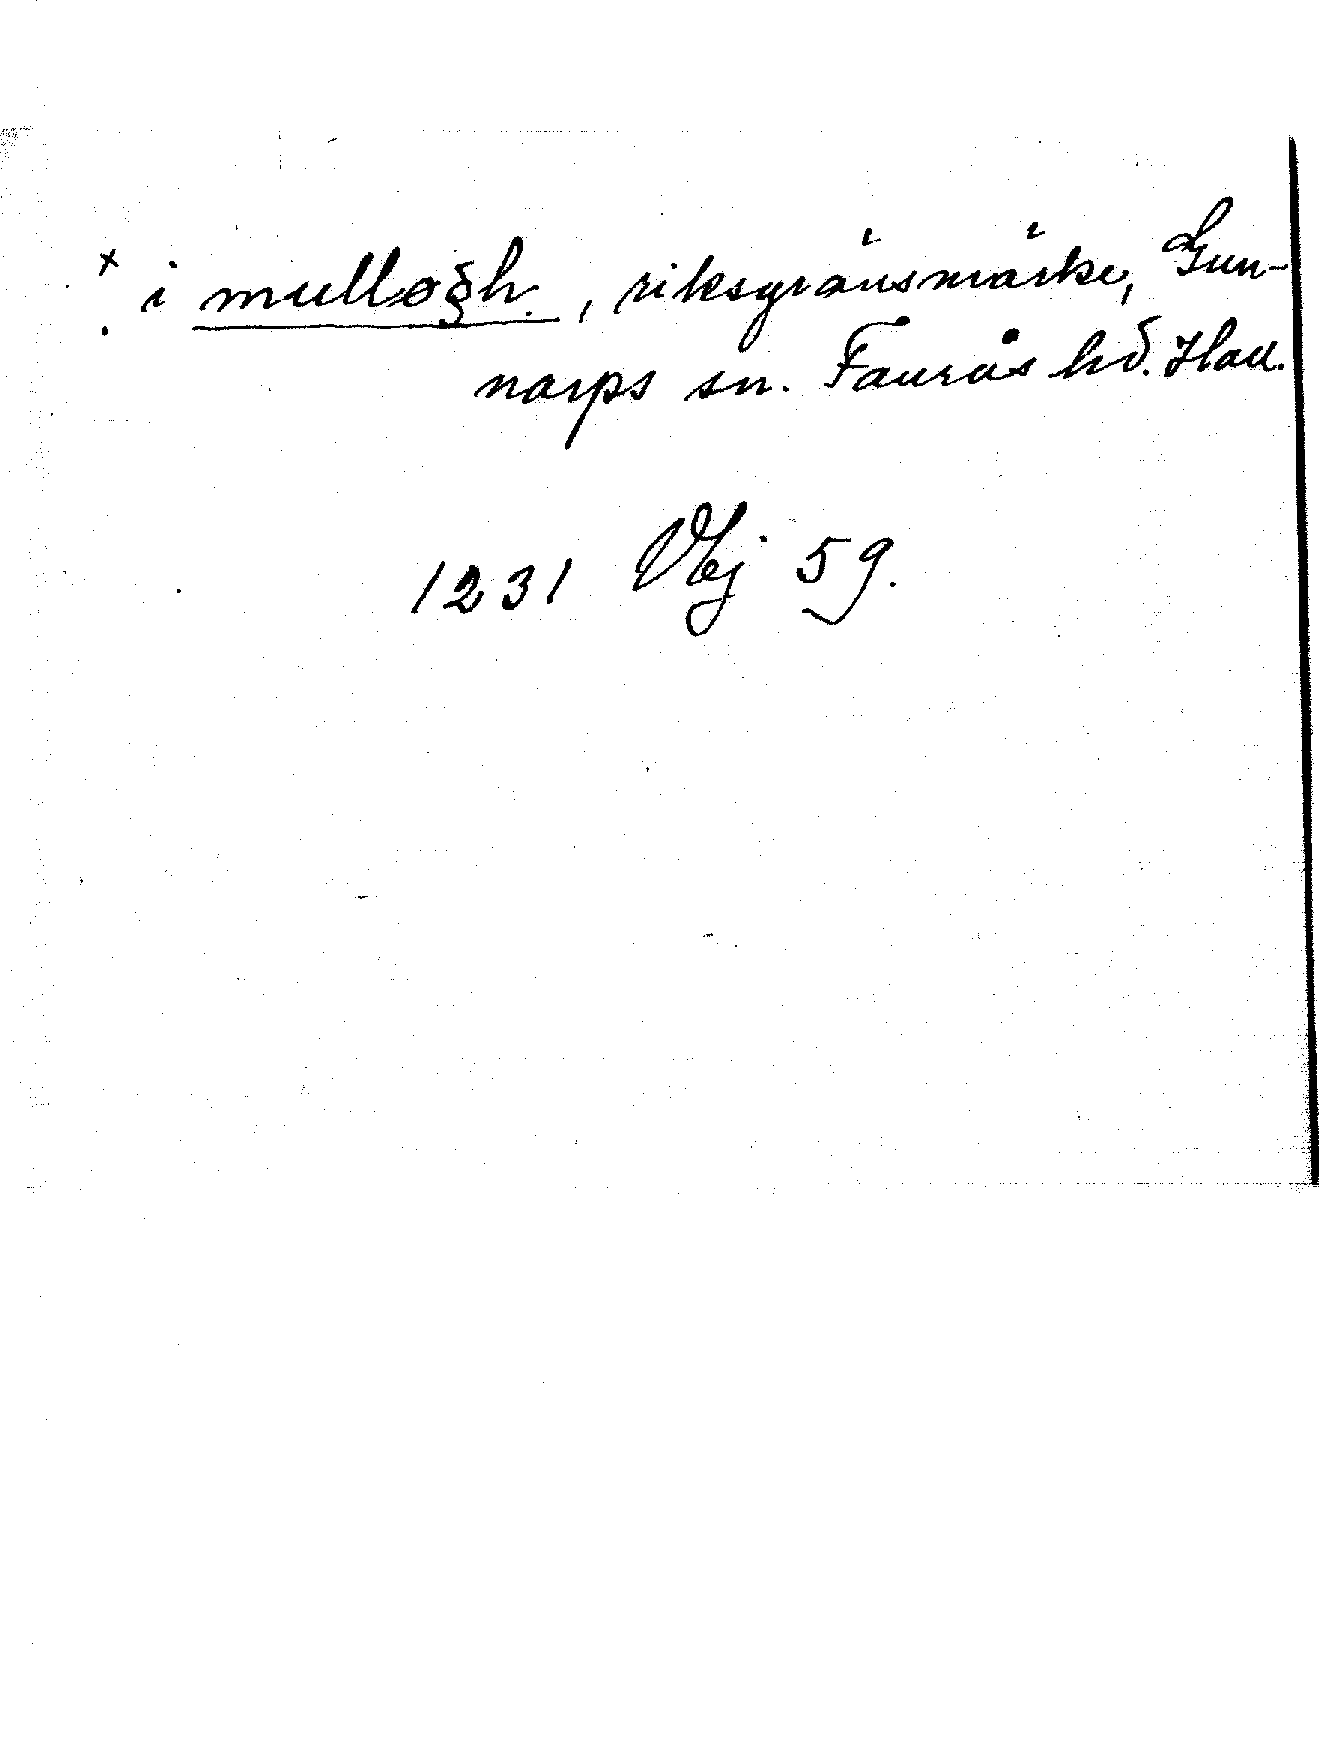 × i mulloȝh., riksgränsmärke, Gun-
narps sn. Faurås hd. Hall.
1231 Vbj 59.